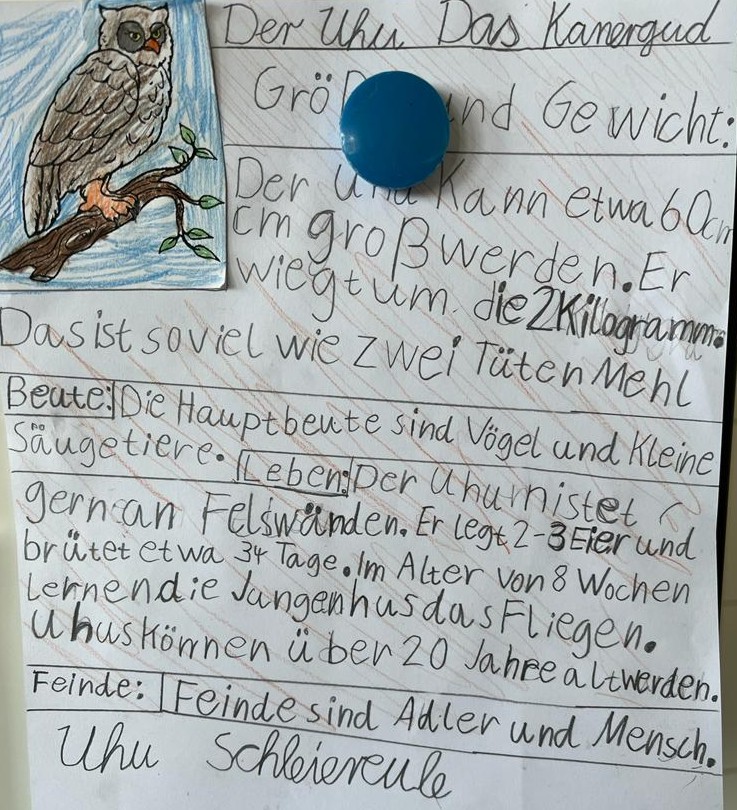 Der Uhu Das Kanergud
Größe und Gewicht:
Der Uhu Kann etwa 60cm
cm groß werden. Er
wiegt um die 2 Kilogramm.
Das ist soviel wie zwei Tüten Mehl
Beute: Die Hauptbeute sind Vögel und Kleine
Säugetiere. Leben: Der Uhu nistet
gern an Felswänden. Er legt 2-3 Eier und
brütet etwa 34 Tage. Im Alter von 8 Wochen
Lernen die Jungenhus das Fliegen.
Uhus können über 20 Jahre alt werden.
Feinde: Feinde sind Adler und Mensch.
Uhu Schleiereule